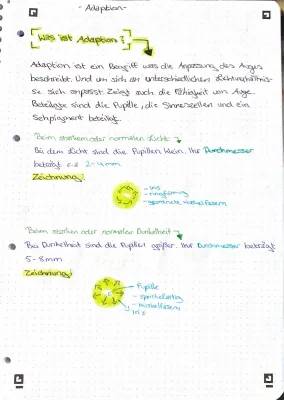 - Adaption -
Was ist Adaption?
Adaption ist ein Begriff was die Anpassung des Auges
beschreibt. Und um sich an unterschiedlichen Lichtverhältnis-
se sich anpasst. Zeigt auch die Fähigkeit vom Auge.
Beteiligte sind die Pupille, die Sinneszellen und ein
Sehpigment beteiligt.
Beim starkem oder normalen Licht:
Bei dem Licht sind die Pupillen klein. Ihr Durchmesser
beträgt c.a 2-4mm.
Zeichnung:
Iris
ringförmig
Beim starken oder normalen Dunkelheit
Bei Dunkelheit sind die Pupillen größer. Ihr Durchmesser beträgt
5-8mm.
Zeichnung:
Pupille
- speichenartig
Iris